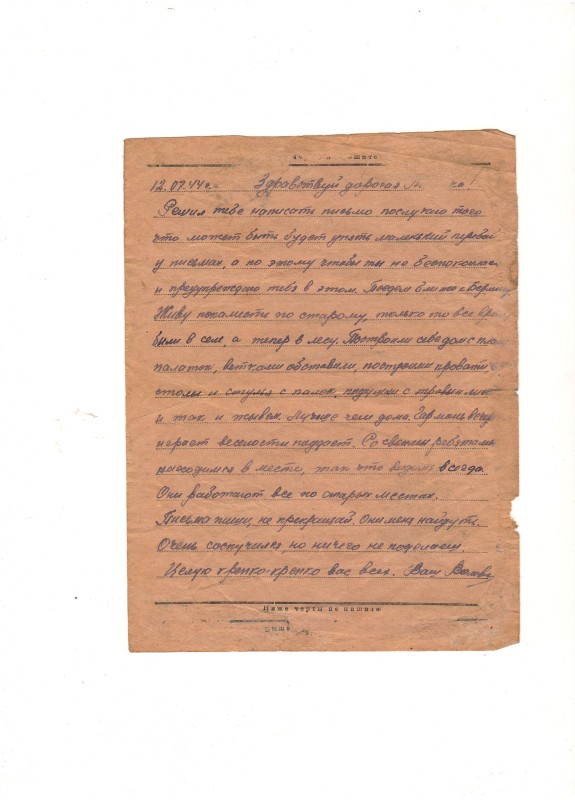 12.07.44 г. Здравствуй дорогая
Решил тебе написать письмо послучаю того
что может быть будет опять маленький перевой
у письмах, а по этому чтобы ты не беспокоилась
и предупреждаю тебя в этом. Поедем ближе к Берлину
Живу покамести по старому, только то все
были в селе, а тепер в лесу. Построили себе дом с
палаток, ветками обставили, построили кровати
столы и стулья с палок, подушки с травы
и так и живем. Лучше чем дома. Гармонь
играет веселости паддает. Со своими ребятами
находимся в месте, так что всегда
Они работают все по старых местах.
Письма пиши, не прекращай. Они меня найдуть.
Очень соскучился, но ничего не поделаеш.
Целую крепко-крепко вас всех. Ваш
Ниже черты не писать